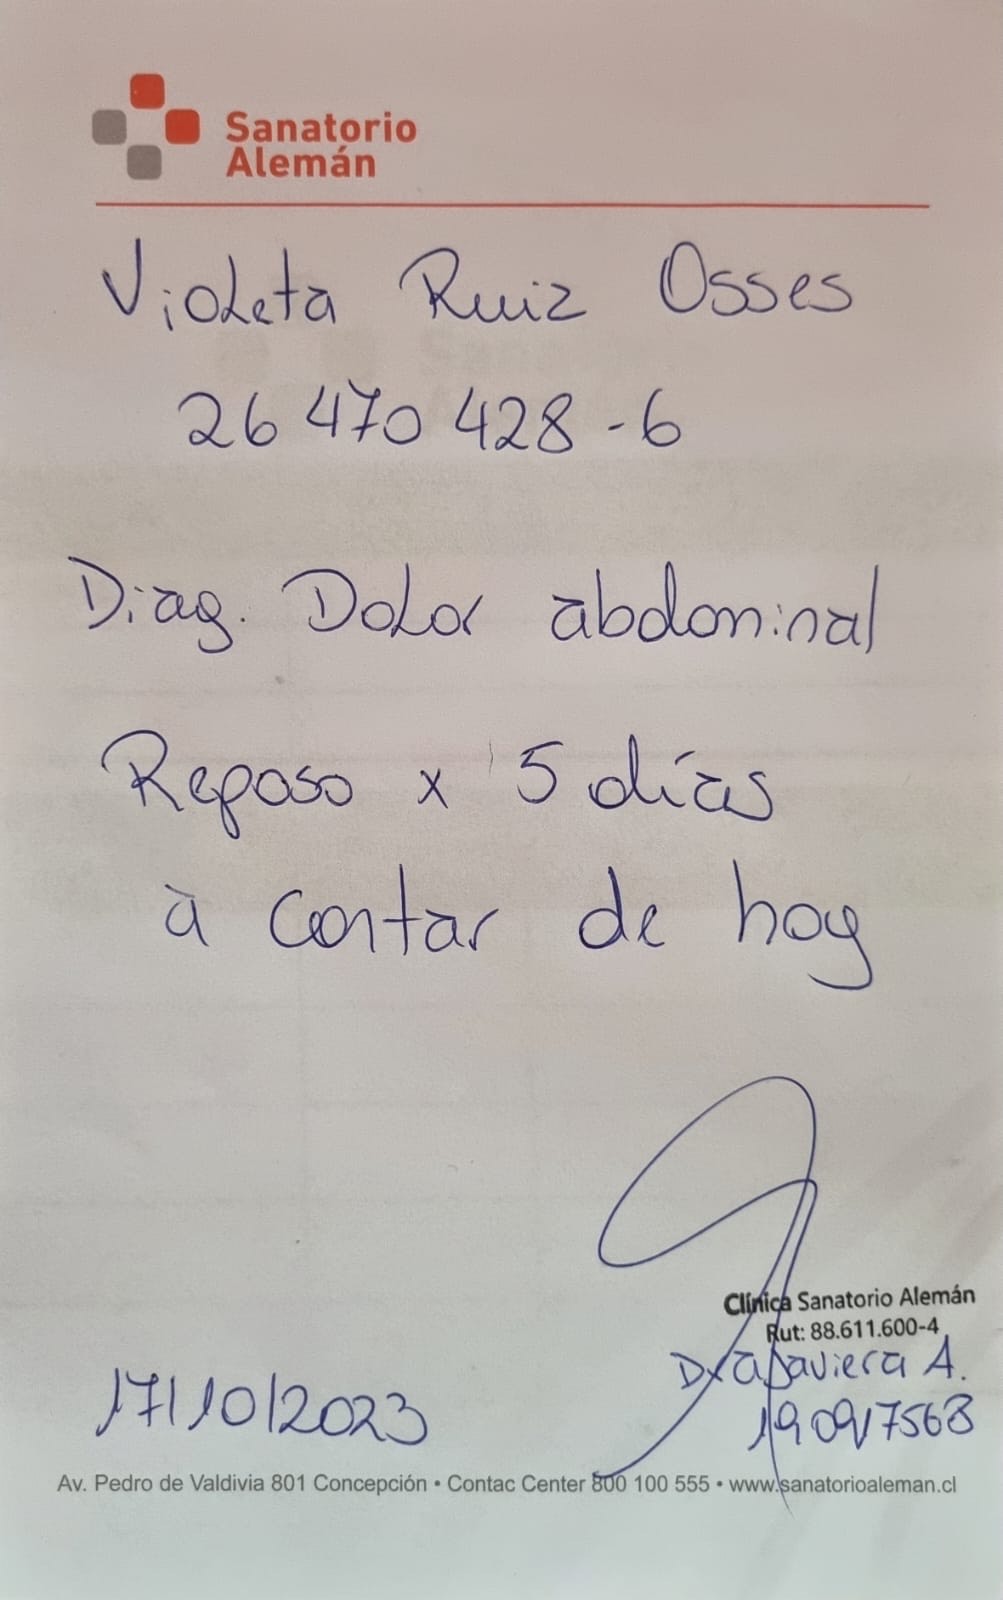 Sanatorio
Alemán
Violeta Ruiz Osses
26 470 428-6
Diag. Dolor abdominal
Reposo x 5 días
a contar de hoy
Clínica Sanatorio Alemán
Rut: 88.611.600-4
Dra Javiera A.
17/10/2023
Av. Pedro de Valdivia 801 Concepción • Contac Center 800 100 555 • www.sanatorioaleman.cl